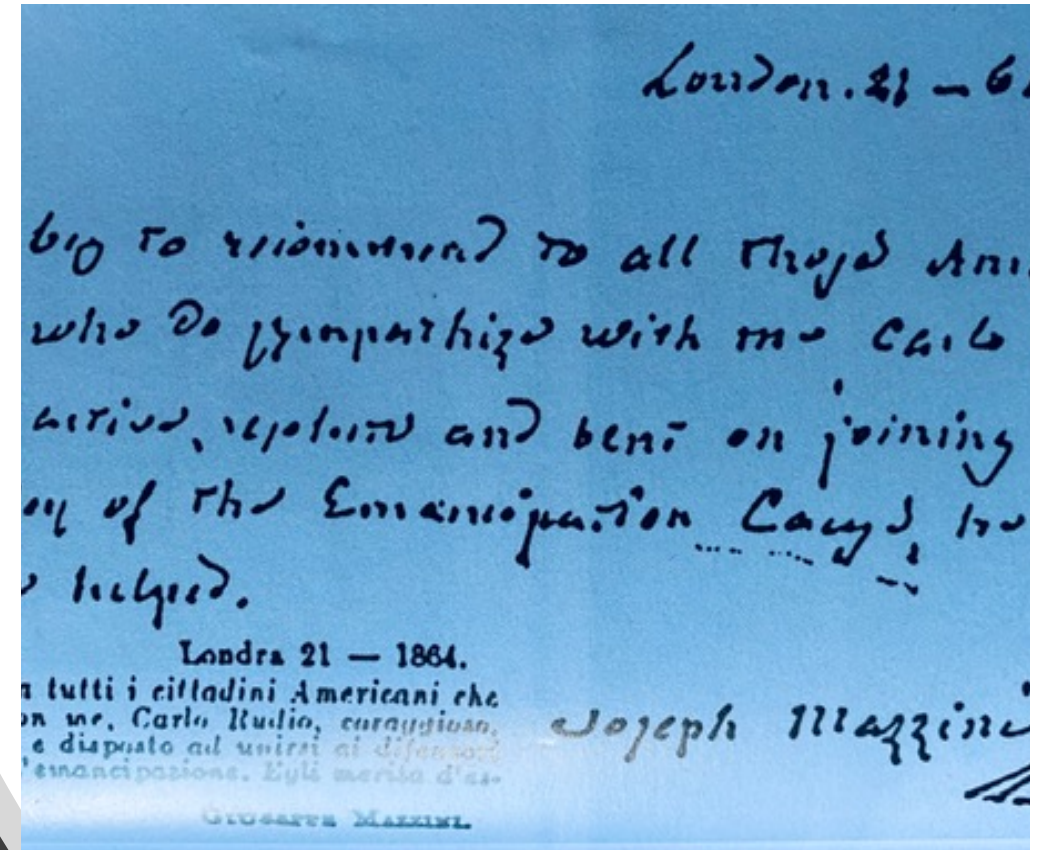 London. 21 – 6
beg to recommend to all those Ame
who do sympathize with me Carlo
active, resolute and bent on joining
of the Emancipation Cause, he
helped.
Londra 21 — 1864.
tutti i cittadini Americani che
on me, Carlo Rudio, coraggioso,
e disposto ad unirsi ai difensori
'emancipazione. Egli merita d'as-
GIUSEPPE MAZZINI.
Joseph Mazzini